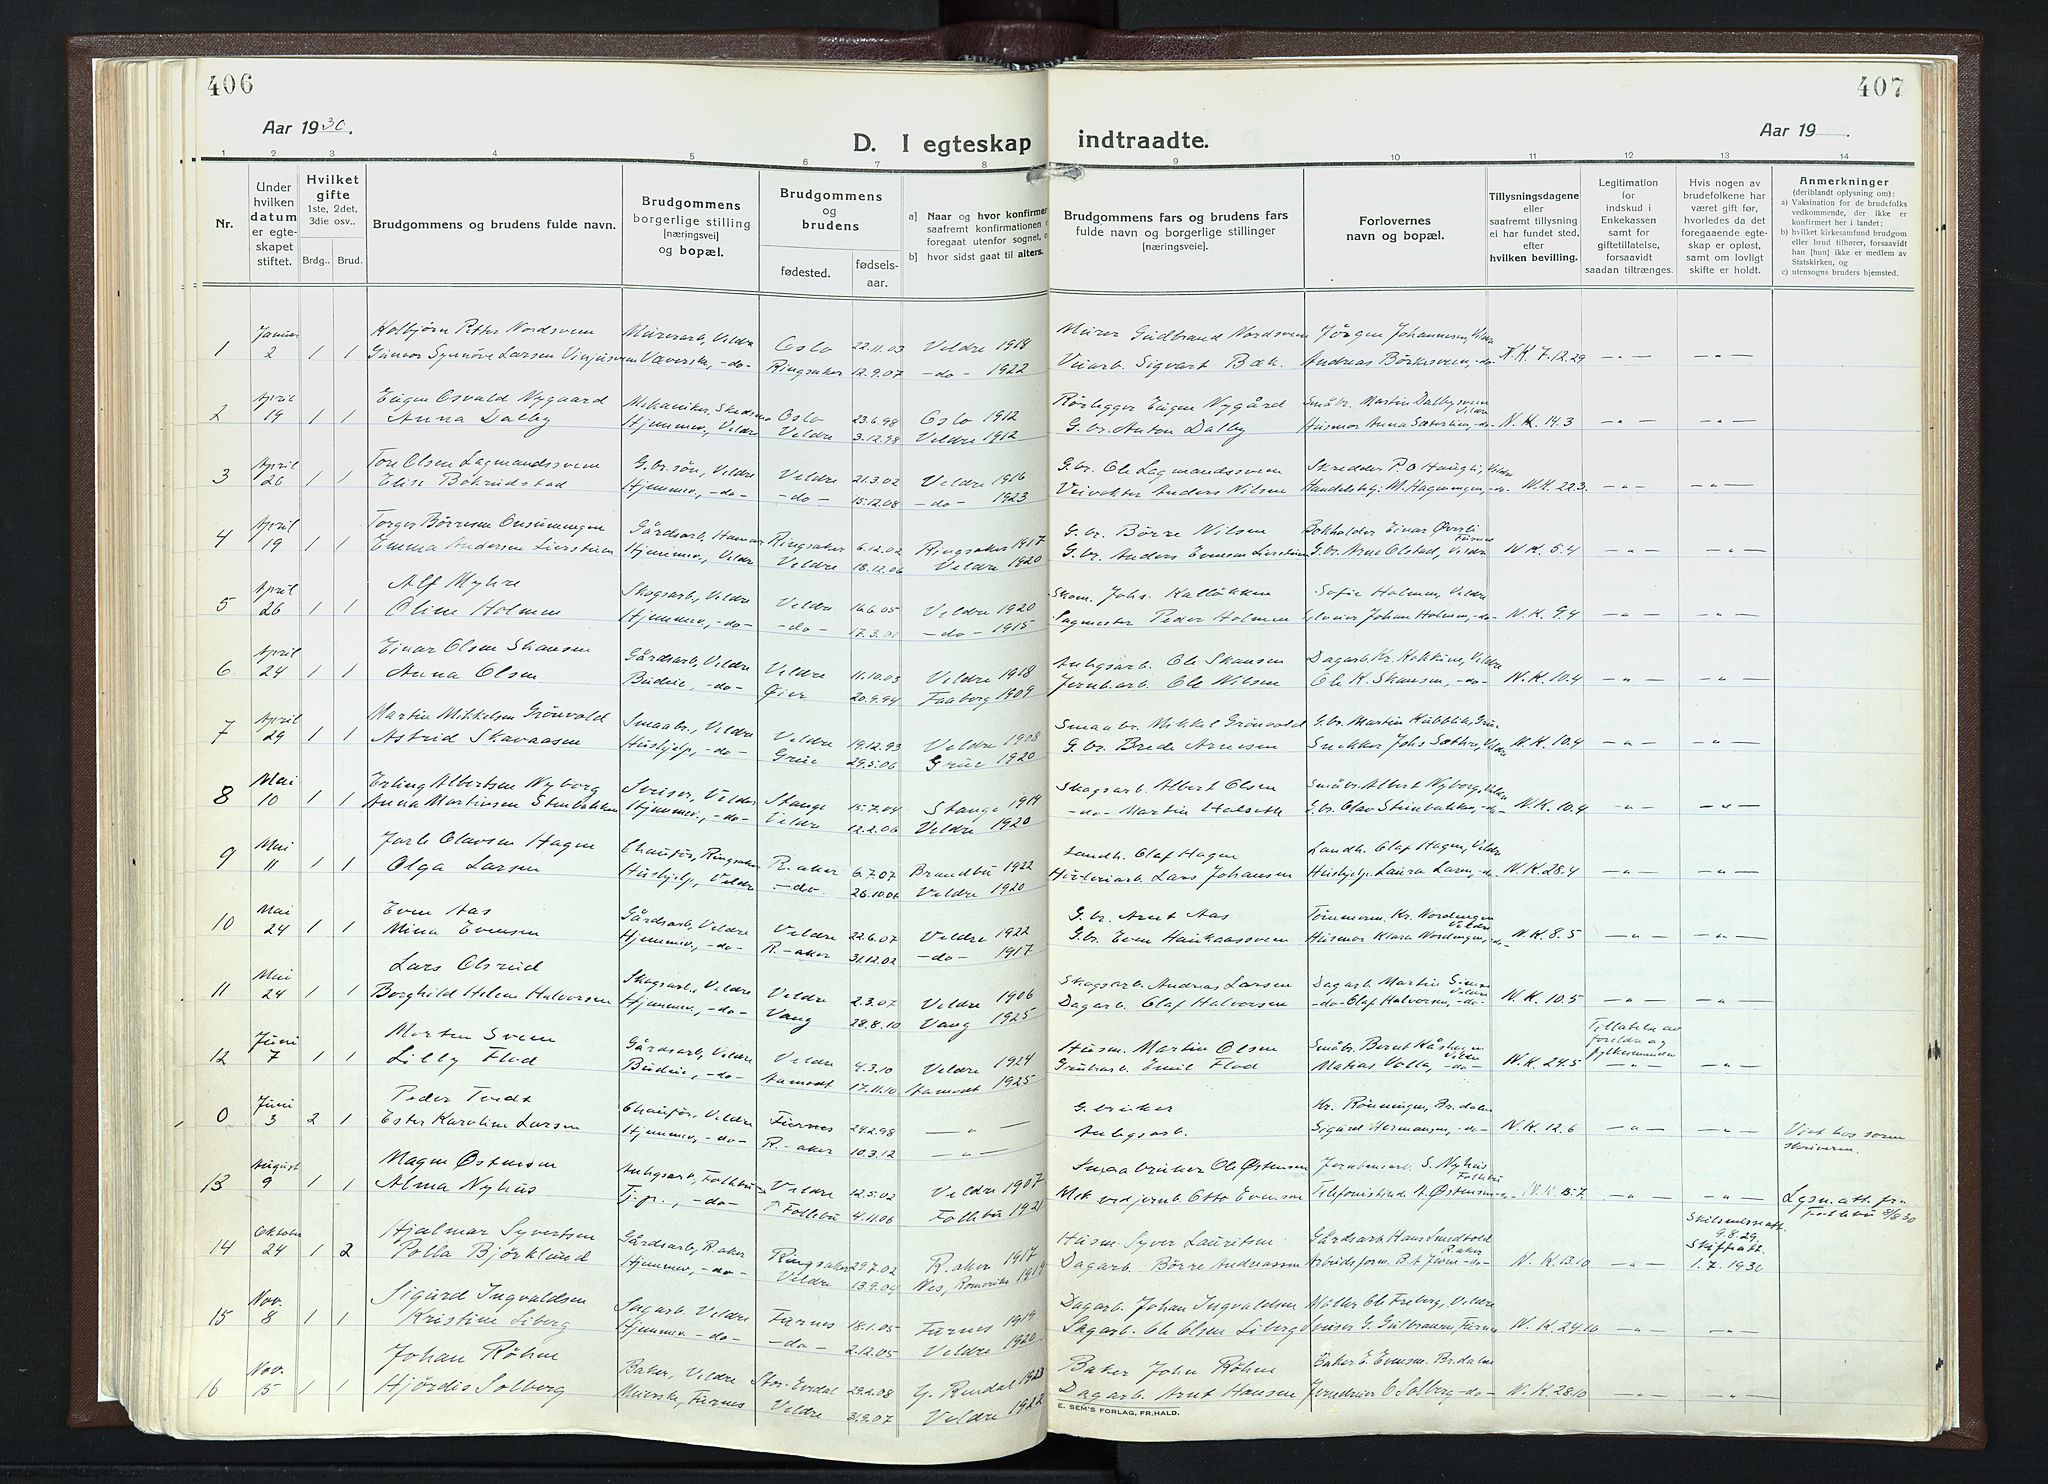 406
407
Aar 1930.
Aar 19 .
D. I egteskap indtraadte.
1 2 3 4 5 6 7 8 9 10 11 12 13 14
Nr.
Under hvilken datum er egteskapet stiftet.
Hvilket gifte 1ste, 2det, 3die osv..
Brdg.. Brud.
Brudgommens og brudens fulde navn.
Brudgommens borgerlige stilling [næringsvei] og bopæl.
Brudgommens og brudens
fødested. fødselsaar.
a] Naar og hvor konfirmer
saafremt konfirmationen
foregaat utenfor sognet,
b] hvor sidst gaat til alters.
Brudgommens fars og brudens fars fulde navn og borgerlige stillinger [næringsveie].
Forlovernes navn og bopæl.
Tillysningsdagene eller saafremt tillysning ei har fundet sted, efter hvilken bevilling.
Legitimation for indskud i Enkekassen samt for giftetillatelse, forsaavidt saadan tiltrænges.
Hvis nogen av brudefolkene har været gift før, hvorledes da det foregaaende egteskap er opløst, samt om lovlig skifte er holdt.
Anmerkninger
(deriblandt oplysning om):
a) Vaksination for de brudefolks vedkommende, der ikke er konfirmert her i landet;
b) hvilket kirkesamfund brudgom eller brud tilhører, forsaavidt han [hun] ikke er medlem av Statskirken, og
c) utensogns bruders hjemsted.
1 Januar 2 1 1 Kolbjørn Petter Nordsveen Murerarb., Veldre Oslo 22.11.03 Veldre 1918 Murer Gudbrand Nordsveen Jørgen Johannesen, Veldre N.K. 7.12.29 —„— —„—
Gunvor Synnøve Larsen Væverske, -do- Ringsaker 12.9.07 -do- 1922 Veiarb. Sigvart Bæk. Andreas Børkesveen, -do-
2 April 19 1 1 Eugen Osvald Nygaard Mekaniker, Oslo 23.6.98 Oslo 1912 Rørlegger Eugen Nygård Småbr. Martin Dalbysveen Veldre N.K. 14.3 —„— —„—
Anna Dalby Hjemmev., Veldre Veldre 3.12.98 Veldre 1912 G.br. Anton Dalby Husmor Anna Sæterlien, -do-
3 April 26 1 1 Tore Olsen Lagmandssveen G.br.søn, Veldre Veldre 21.3.02 Veldre 1916 G.br. Ole Lagmandssveen Skredder P.O Haugli, Veldre N.K. 22.3. —„— —„—
Elise Bøhrudstad Hjemmev., -do- -do- 15.12.08 -do- 1923 Veivokter Anders Nilsen
4 April 19 1 1 Torger Børresen Onsumengen Gårdsarb., Ringsaker 6.12.02 Ringsaker 1917 G.br. Børre Nilsen Bokholder Einar Øverli Furnes N.K. 5.4 —„— —„—
Emma Andersen Lierstuen Hjemmev., Veldre Veldre 18.12.06 Veldre 1920 G.br. Anders Evensen Lierstuen G.br. Arne Olstad, Veldre
5 April 26 1 1 Alf Myhre Skogsarb., Veldre Veldre 16.6.05 Veldre 1920 Skom. Johs. Kalløkken Sofie Holmen, Veldre N.K. 9.4 —„— —„—
Oline Holmen Hjemmev., -do- -do- 17.3.01 -do- 1915 Sagmester Peder Holmen Johan Holmen, -do-
6 April 24 1 1 Einar Olsen Skansen Gårdsarb., Veldre Veldre 11.10.03 Veldre 1918 Anlegsarb. Ole Skansen Dagarb. Kr. Veldre N.K. 10.4 —„— —„—
Anna Olsen Budeie, -do- Øier 20.9.94 Faaberg 1909 Jernb.arb. Ole Nilsen Ole K. Skansen, -do-
7 April 29 1 1 Martin Mikkelsen Grønvold Smaabr., Veldre Veldre 19.12.93 Veldre 1908 Smaabr. Mikkel Grønvold G.br. Martin Kubblik, Grue N.K. 10.4 —„— —„—
Astrid Skavaasen Hushjelp, -do- Grue 29.5.06 Grue 1920 G.br. Brede Arnesen Snekker Johs Sæther, Veldre
8 Mai 10 1 1 Erling Albertsen Nyborg Sveiser, Veldre Stange 15.7.04 Stange 1919 Skogsarb. Albert Olsen Småbr. Albert Nyborg, Veldre N.K. 10.4 —„— —„—
Anna Martinsen Stenbakken Hjemmev., -do- Veldre 12.2.06 Veldre 1920 -do- Martin Halseth G.br. Olav Stenbakken, -do-
9 Mai 11 1 1 Jarle Olavsen Hagen Chaufør, Ringsaker R.-aker 6.7.07 Brandbu 1922 Landh. Olaf Hagen Landh. Olaf Hagen, Veldre N.K. 28.4 —„— —„—
Olga Larsen Hushjelp, Veldre -do- 26.10.06 Veldre 1920 Lars Johansen Hushjelp Laura Larsen, -do-
10 Mai 24 1 1 Even Aas Gårdsarb., Veldre Veldre 22.6.07 Veldre 1922 G.br. Arnt Aas Tømmerm. Kr. Nordengen Veldre N.K. 8.5 —„— —„—
Mina Evensen Hjemmev., -do- R.-aker 31.12.02 -do- 1917 G.br. Even Haukaassveen Husmor Klara Nordengen, -do-
11 Mai 24 1 1 Lars Olsrud Skogsarb., Veldre Veldre 2.3.07 Veldre 1906 Skogsarb. Andreas Larsen Dagarb. Martin Simen Veldre N.K. 10.5 —„— —„—
Borghild Helene Halvorsen Hjemmev., -do- Vang 28.8.10 Vang 1925 Dagarb. Olaf Halvorsen -do- Olaf Halvorsen, -do-
12 Juni 7 1 1 Morten Sveen Gårdsarb., Veldre Veldre 4.3.10 Veldre 1924 Husm. Martin Olsen Småbr. Bernt Veldre N.K. 24.5 Tillatelse av foreldre og fylkesmannen —„—
Lilly Flod Budeie, -do- Hamodt 17.11.10 Hamodt 1925 Grubearb. Emil Flod Matias Volla, -do- —„—
0 Juni 3 2 1 Peder Tvedt Chaufør, Veldre Furnes 24.2.98 —„— G.bruker Kr. Rønningen, Br.dalen N.K. 12.6 —„— —„— Viet hos sorenskriveren.
Ester Karoline Larsen Hjemmev., -do- R.-aker 10.3.12 —„— Anlegsarb. Sigurd Hermansen, -do-
13 August 9 1 1 Magne Østensen Anlegsarb., Follebu Veldre 12.5.02 Veldre 1907 Smaabruker Ole Østensen Jernbanearb. S. Nyhus Follebu N.K. 15.7 —„— —„— Lysn.att. fra Follebu 8/8 30
Alma Nyhus Tj.p., -do- Follebu 4.11.06 Follebu 1921 Mek. ved jernb. Otto Evensen Østensen
14 Oktober 24 1 2 Hjalmar Syvertsen Gårdsarb., R.aker Ringsaker 29.7.02 R.aker 1917 Husm. Syver Lauritsen Gårdsarb. Hans Smedvold R.aker N.K. 13.10 —„— Skilsmisseatt. 9.8.29. Skifteatt. 1.7.1930
Polla Bjørklund Hjemmev., -do- Veldre 13.9.04 Nes, Romerike 1919 Dagarb. Børre Andreassen Arbeidsform. -do-
15 Nov. 8 1 1 Sigurd Ingvaldsen Sagarb. Veldre Furnes 18.1.05 Furnes 1919 Dagarb. Johan Ingvaldsen Møller Ole Freberg, Veldre N.K. 24.10 —„— —„—
Kristine Liberg Hjemmev. -do- -do- 2.12.05 Veldre 1920 Sagarb. Ole Olsen Liberg Sveiser G. Gulbransen, Furnes
16 Nov. 15 1 1 Johan Røhne Baker, Veldre Stor-Elvdal 29.2.08 Y. Rendal 1923 Baker John Røhne Baker E. Evensen Br.dalen N.K. 28.10 —„— —„—
Hjørdis Solberg Meierske, Furnes Veldre 3.9.07 Veldre 1922 Dagarb. Arnt Hansen Jerndreier O Solberg -do-
E. SEM'S FORLAG, FR.HALD.